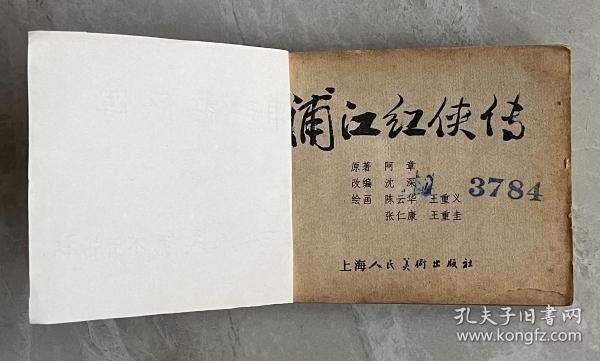 浦江红侠传
原著 阿章
改编 沈深
绘画 陈云华 王重义
张仁康 王重圭
3784
上海人民美術出版社
孔夫子旧书网